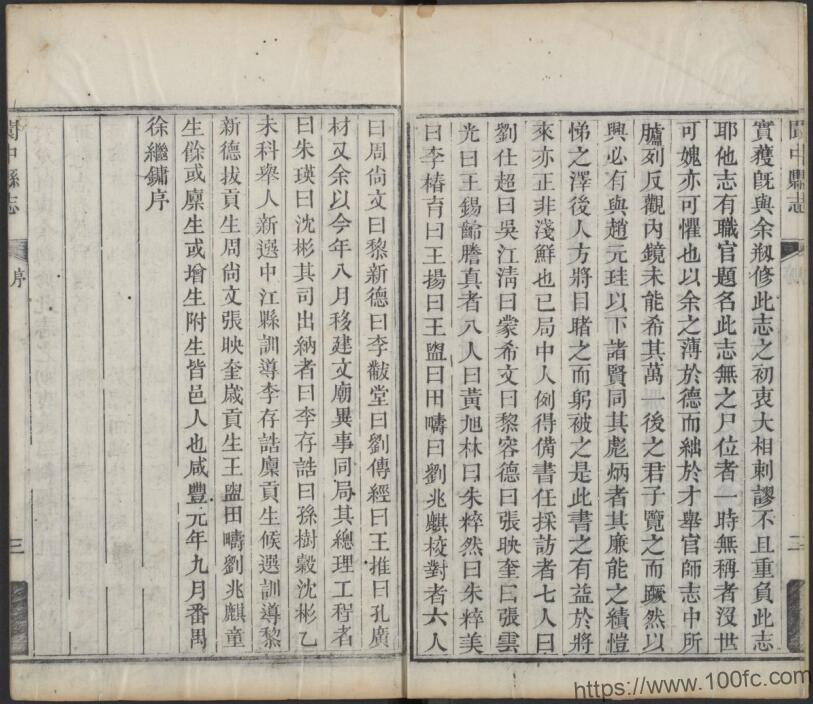 閬中縣志
實穫旣與余剏修此志之初衷大相刺謬不且重負此志
耶他志有職官題名此志無之尸位者一時無稱者沒世
可媿亦可懼也以余之薄於德而絀於才舉官師志中所
臚列反觀內鏡未能希其萬一後之君子覽之而蹶然以
興必有與趙元珪以下諸賢同其彪炳者其廉能之績愷
悌之澤後人方將目睹之而躬被之是此書之有益於將
來亦正非淺鮮也已局中人例得備書任採訪者七人曰
劉仕超曰吳江清曰蒙希文曰黎容德曰張映奎曰張雲
光曰王錫齡謄真者八人曰黃旭林曰朱粹然曰朱粹美
曰李椿育曰王揚曰王盥曰田疇曰劉兆麒校對者六人
二
曰周尙文曰黎新德曰李黻堂曰劉傳經曰王推曰孔廣
材又余以今年八月移建文廟異事同局其總理工程者
曰朱瑛曰沈彬其司出納者曰李存誥曰孫樹穀沈彬乙
未科舉人新選中江縣訓導李存誥廩貢生候選訓導黎
新德拔貢生周尙文張映奎歲貢生王盥田疇劉兆麒童
生餘或廩生或增生附生皆邑人也咸豐元年九月番禺
徐繼鏞序
閬中縣志
序
三
https://www.100fc.com